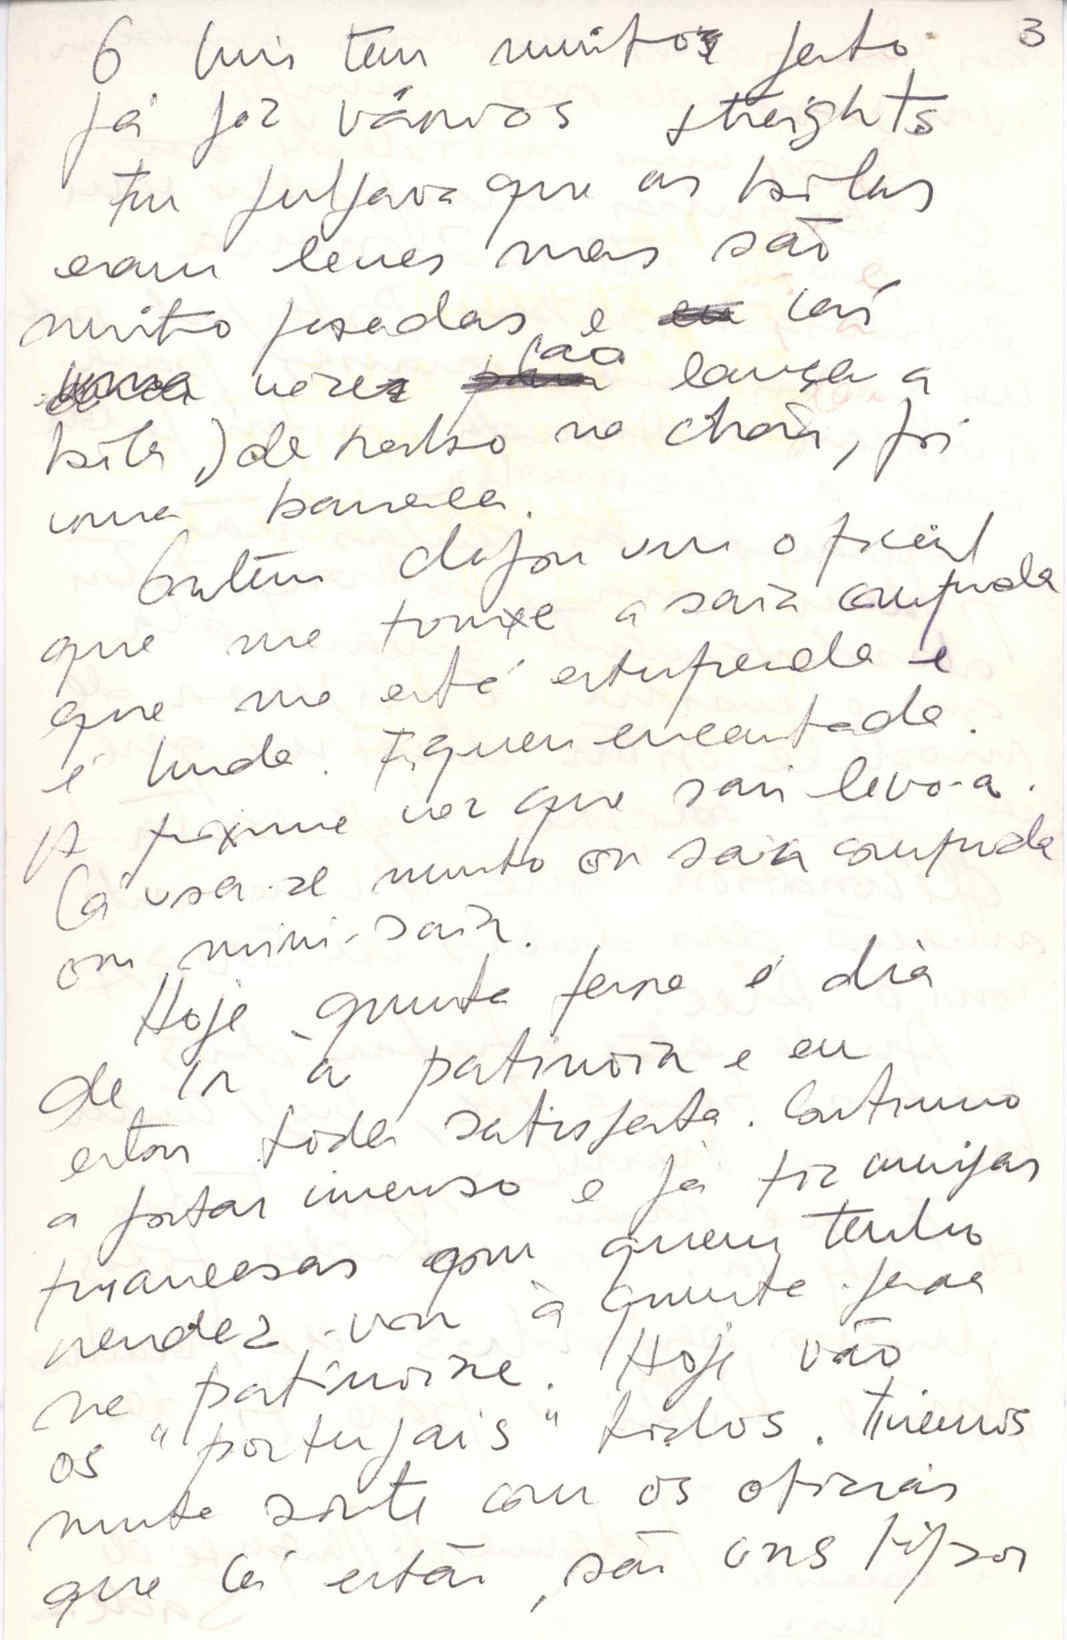 3
O Luis tem muito jeito
já fez vários streights
Eu julgava que as bolas
eram leves mas são
muito pesadas e caí
vezes (ao lançar a
bola) de rabo no chão, foi
uma barraca.
Ontem chegou um oficial
que me trouxe a saia comprida
que me está estupenda e
é linda. Fiquei encantada.
A próxima vez que sair levo-a.
Cá usa-se muito ou saia comprida
ou mini-saia.
Hoje quinta feira é dia
de ir à patinoire e eu
estou toda satisfeita. Continuo
a gostar imenso e já fiz amigas
francesas com quem tenho
rendez-vou à quinta-feira
na patinoire. Hoje vão
os "portugais" todos. Tivemos
muita sorte com os oficiais
que cá estão, são uns tipos